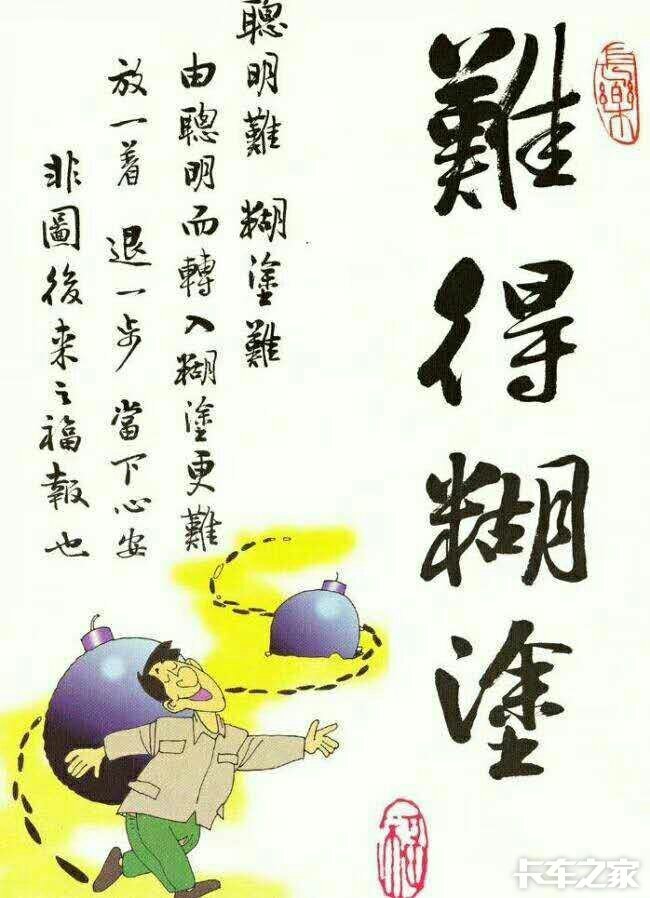 難得糊塗
長樂
聰明難 糊塗難
由聰明而轉入糊塗更難
放一着 退一步 當下心安
非圖後来之福報也
卡车之家